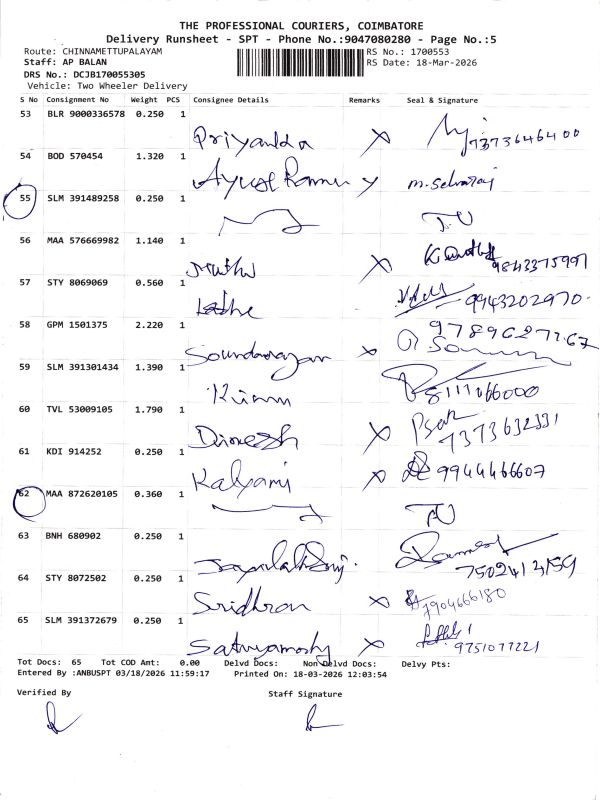 THE PROFESSIONAL COURIERS, COIMBATORE
Delivery Runsheet - SPT - Phone No.:9047080280 - Page No.:5
Route: CHINNAMETTUPALAYAM RS No.: 1700553
Staff: AP BALAN RS Date: 18-Mar-2026
DRS No.: DCJB170055305
Vehicle: Two Wheeler Delivery
S No Consignment No Weight PCS Consignee Details Remarks Seal & Signature
53 BLR 9000336578 0.250 1
Priyanka X 7373646400
54 BOD 570454 1.320 1
m. Selvaraj
55 SLM 391489258 0.250 1
56 MAA 576669982 1.140 1
Muthu X 9843375991
57 STY 8069069 0.560 1
9943202970
58 GPM 1501375 2.220 1
Soundararajan X
59 SLM 391301434 1.390 1
Kiran 8111066000
60 TVL 53009105 1.790 1
Dinesh X
61 KDI 914252 0.250 1
Kalyani X 9944466607
62 MAA 872620105 0.360 1
63 BNH 680902 0.250 1
7502412159
64 STY 8072502 0.250 1
Sridhran X 7904666180
65 SLM 391372679 0.250 1
X 9751077221
Tot Docs: 65 Tot COD Amt: 0.00 Delvd Docs: Non Delvd Docs: Delvy Pts:
Entered By :ANBUSPT 03/18/2026 11:59:17 Printed On: 18-03-2026 12:03:54
Verified By Staff Signature